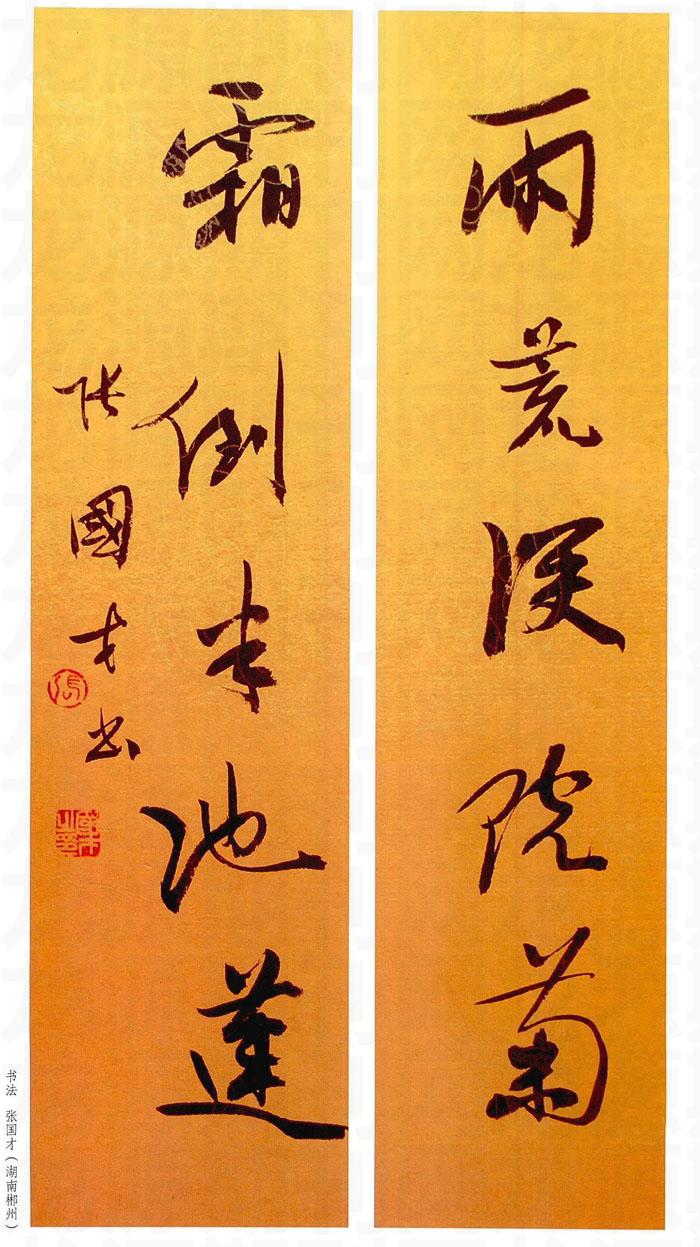 雨荒深院菊
霜倒半池蓮
張國才书
張
书法 张国才（湖南郴州）